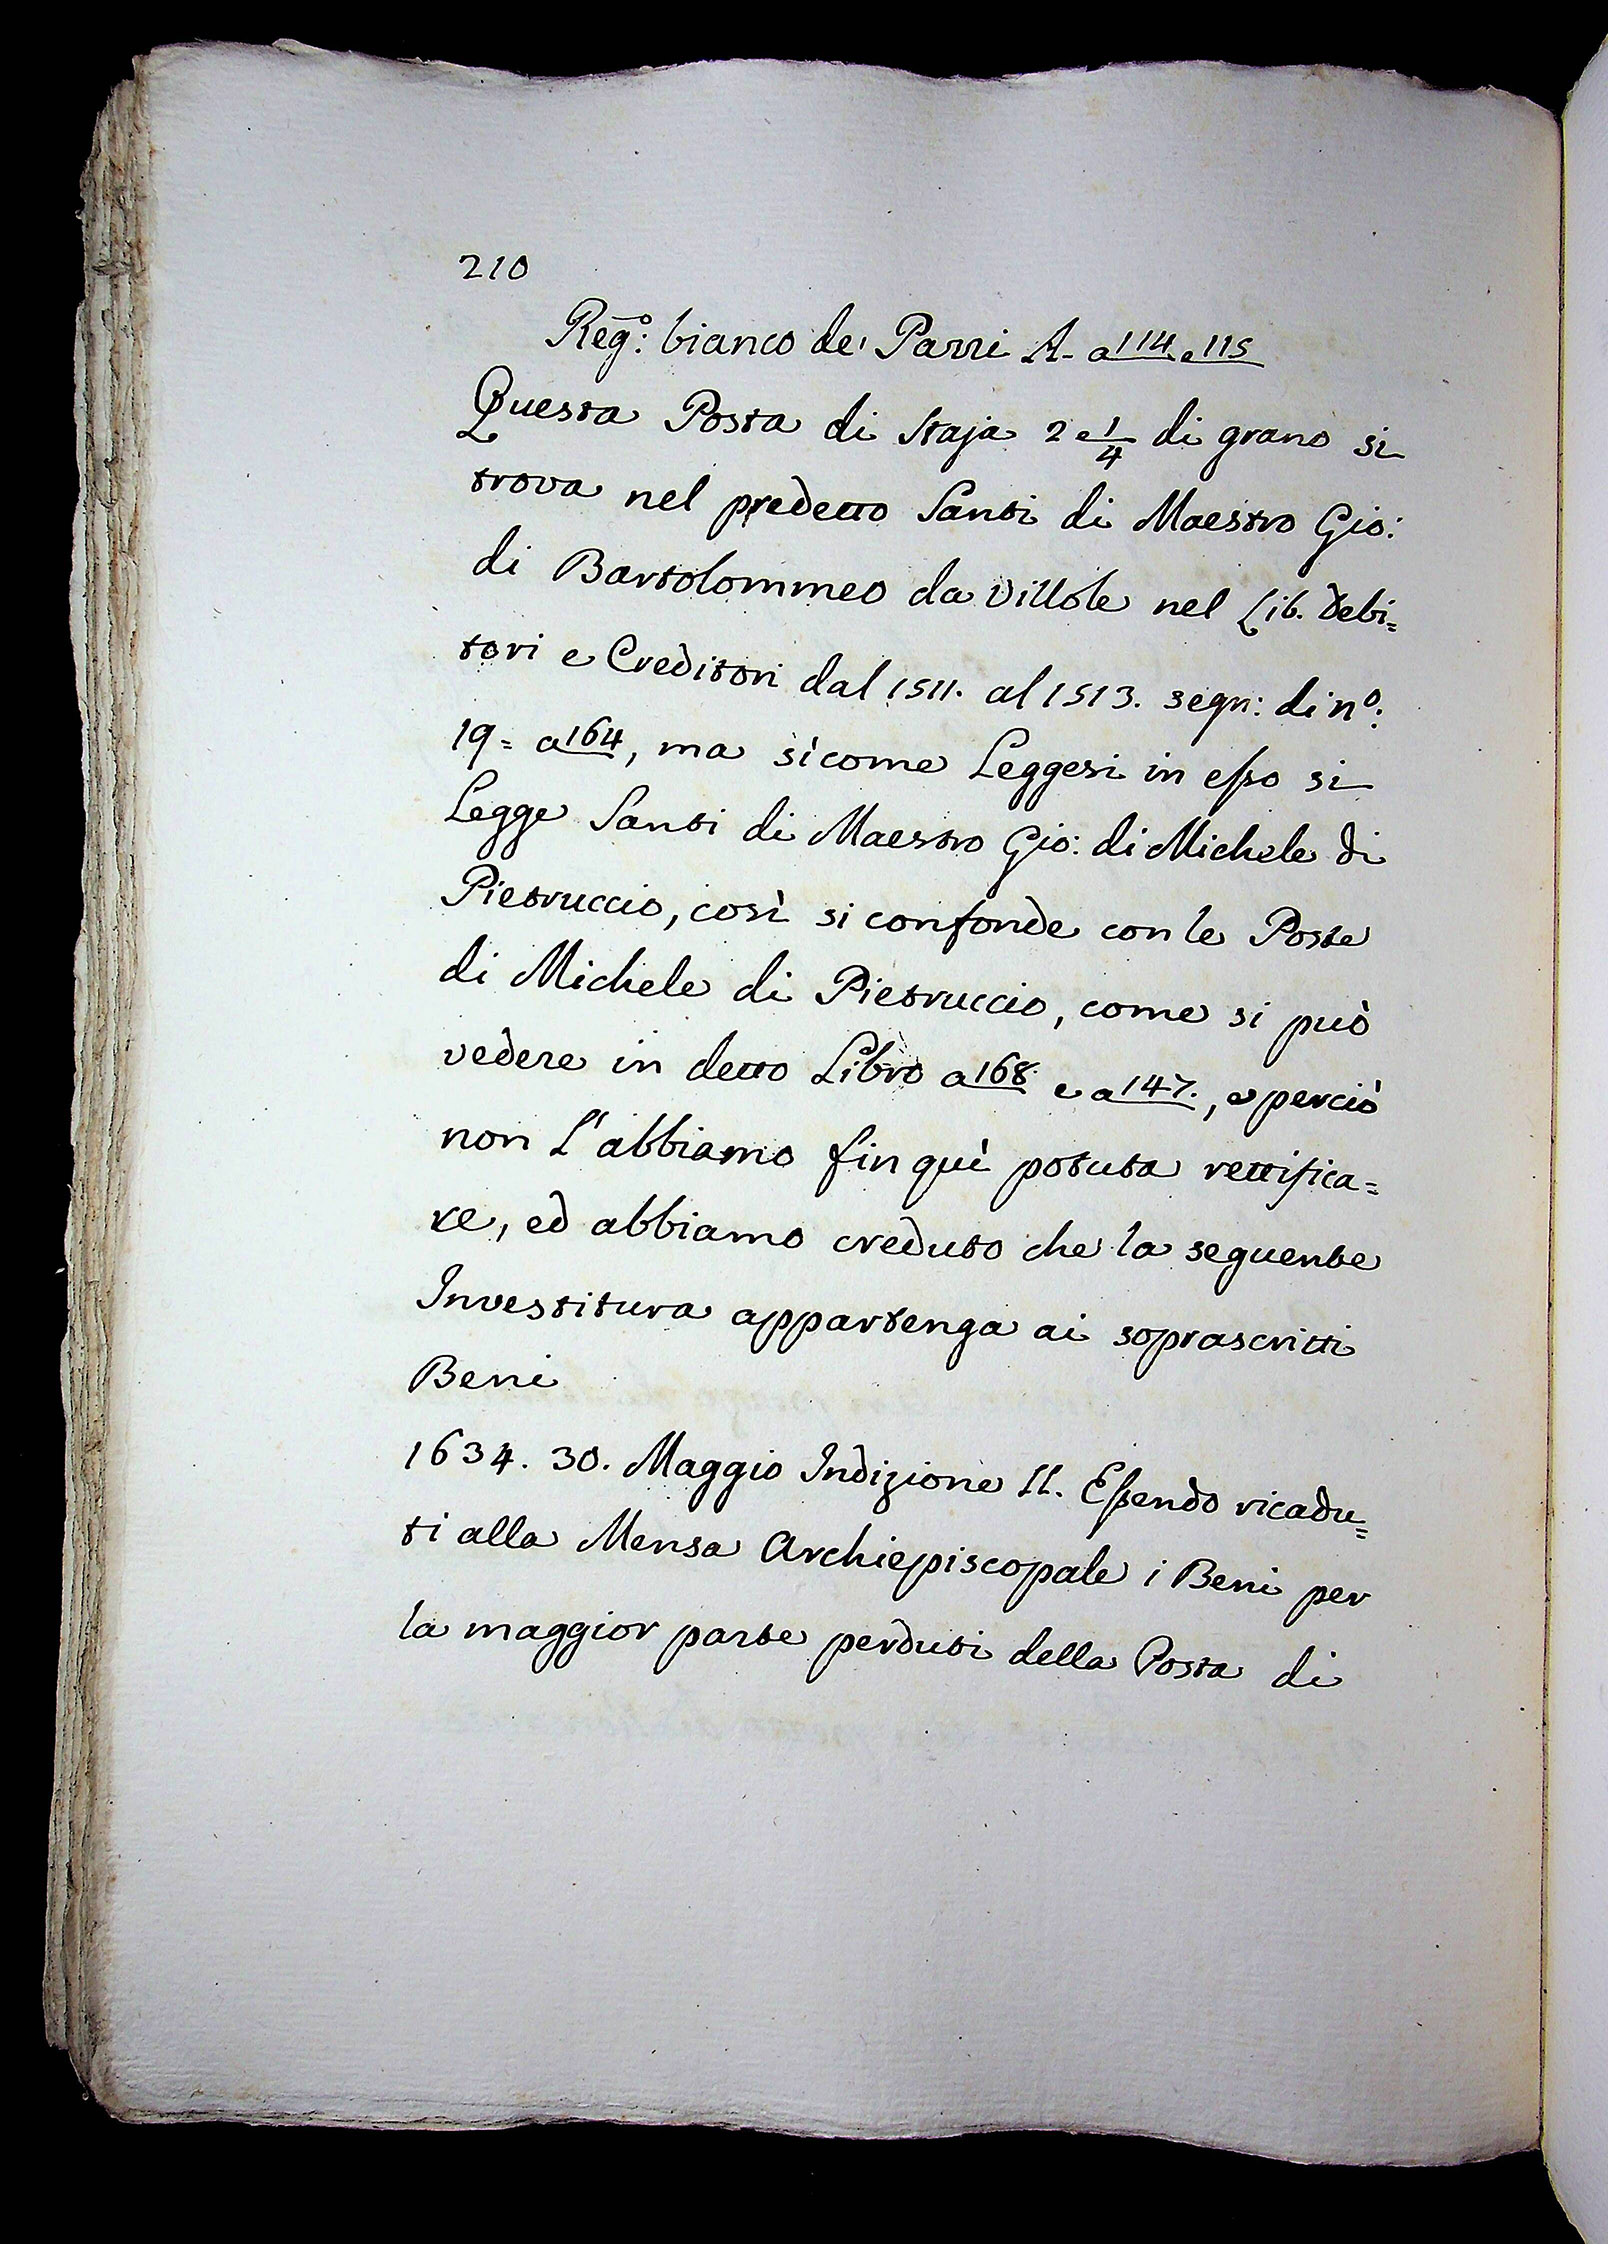 210
Reg.º: bianco de' Parri A- a 114 e 115
Questa Posta di Staja 2 e 1/4 di grano si
trova nel predetto Santi di Maestro Gio:
di Bartolommeo da Villole nel Lib. debi=
tori e Creditori dal 1511. al 1513. segn: di nº:
19= a 164, ma sìcome Leggesi in esso si
Legge Santi di Maestro Gio: di Michele di
Pietruccio, così si confonde con le Poste
di Michele di Pietruccio, come si può
vedere in detto Libro a 168. e a 147., e perciò
non l'abbiamo fin quì potuta rettifica=
re, ed abbiamo creduto che la seguente
Investitura appartenga ai soprascritti
Beni
1634. 30. Maggio Indizione II. Essendo ricadu=
ti alla Mensa Archiepiscopale i Beni per
la maggior parte perduti della Posta di